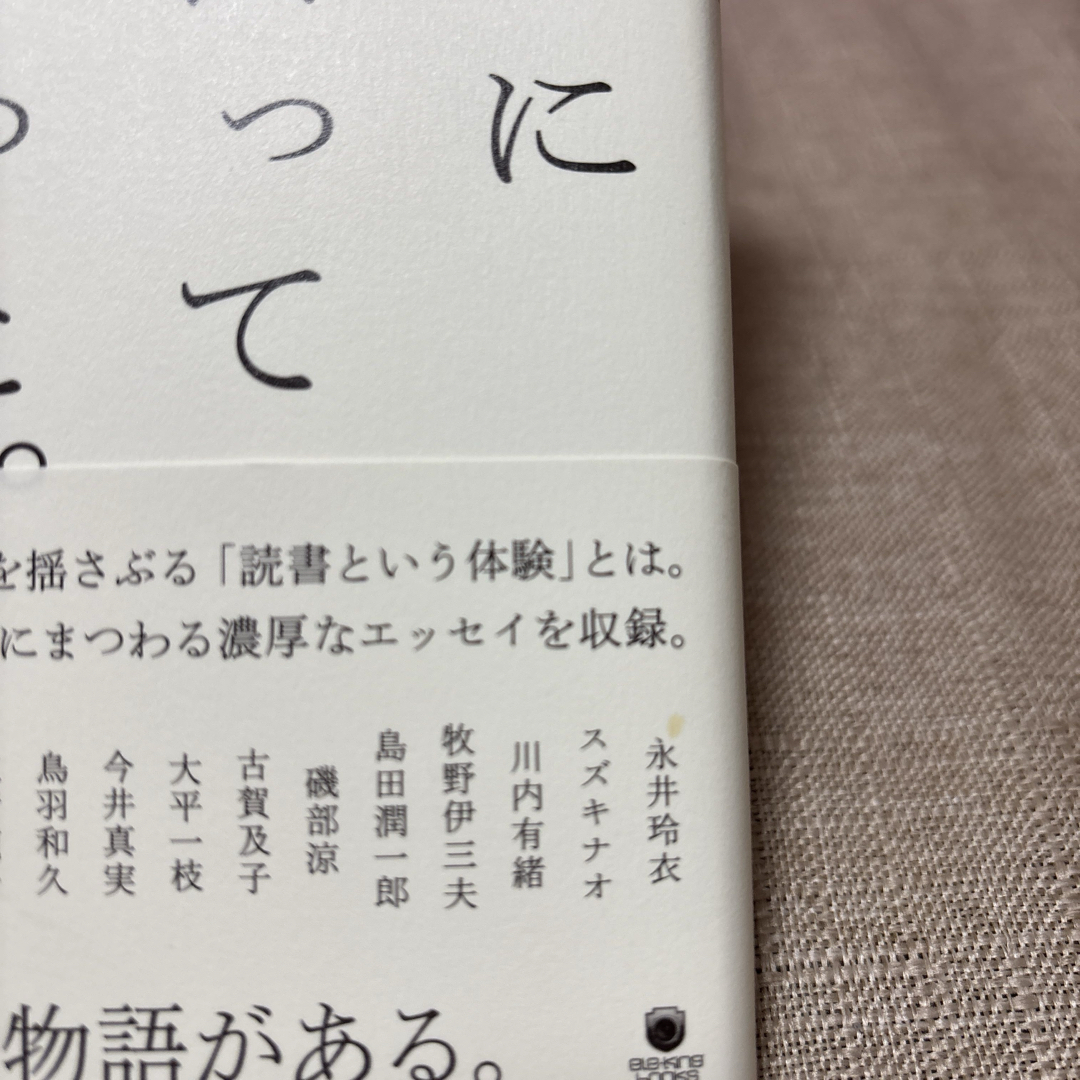 に
って
を揺さぶる「読書という体験」とは。
にまつわる濃厚なエッセイを収録。
永井玲衣
スズキナオ
川内有緒
牧野伊三夫
島田潤一郎
磯部涼
古賀及子
大平一枝
今井真実
鳥羽和久
物語がある。
ele-king
books